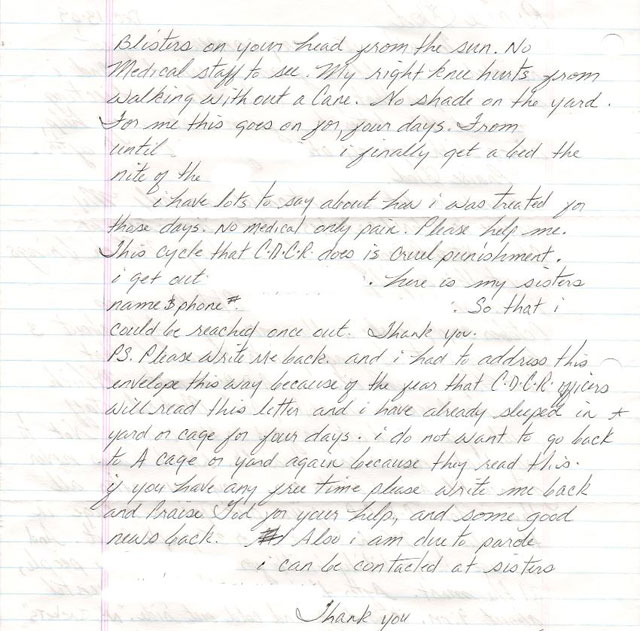 Blisters on your head from the sun. No
Medical staff to see. My right knee hurts from
walking without a Cane. No shade on the yard.
For me this goes on for, four days. From
until i finally get a bed the
nite of the
i have lots to say about how i was treated for
those days. No medical only pain. Please help me.
This cycle that C.D.C.R. does is Cruel punishment.
i get out . here is my sisters
name & phone #. . So that i
could be reached once out. Thank you.
P.S. Please write me back. and i had to address this
envelope this way because of the fear that C.D.C.R. officers
will read this letter and i have already sleeped in
yard or cage for four days. i do not want to go back
to A cage or yard again because they read this.
if you have any free time please write me back
and Praise God for your help, and some good
news back. Also i am due to parole
i can be contacted at sisters
Thank you